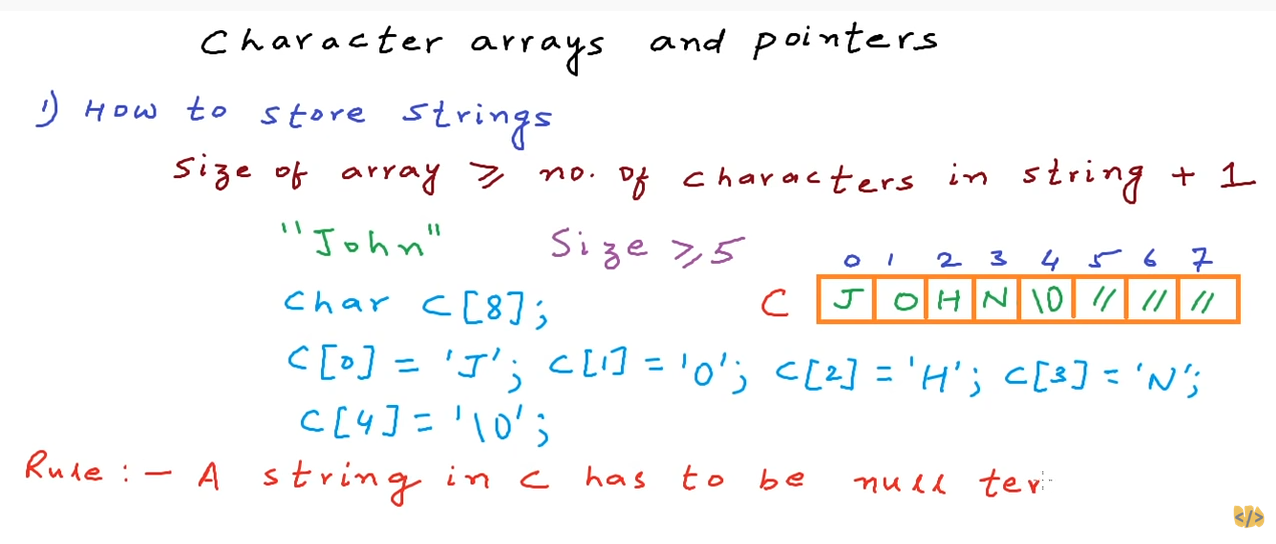 Character arrays and pointers
1) How to store strings
Size of array ≥ no. of characters in string + 1
"John" Size ≥ 5
0 1 2 3 4 5 6 7
char C[8]; C J O H N \0 // // //
C[0] = 'J'; C[1] = 'O'; C[2] = 'H'; C[3] = 'N';
C[4] = '\0';
Rule :- A string in C has to be null ter
</>